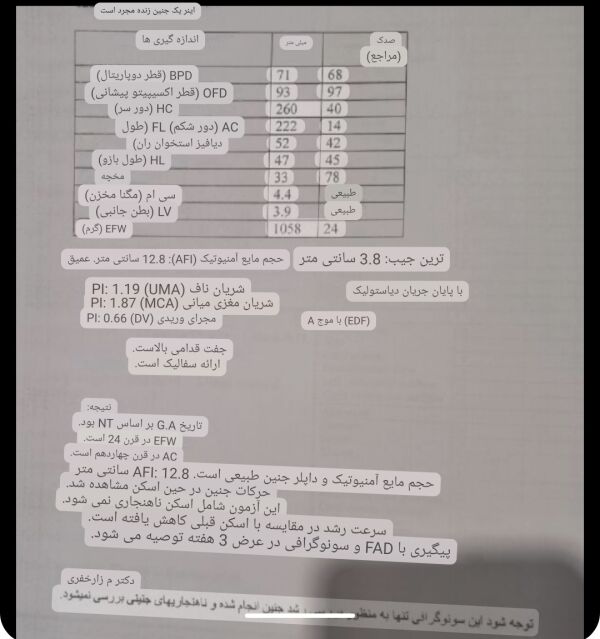 اینر یک جنین زنده مجرد است
اندازه گیری ها میلی متر صدک (مراجع)
BPD (قطر دوپاریتال) 71 68
OFD (قطر اکسیپیتو پیشانی) 93 97
HC (دور سر) 260 40
AC (دور شکم) FL (طول 222 14
دیافیز استخوان ران) 52 42
HL (طول بازو) 47 45
مخچه 33 78
سی ام (مگنا مخزن) 4.4 طبیعی
LV (بطن جانبی) 3.9 طبیعی
EFW (گرم) 1058 24
حجم مایع آمنیوتیک (AFI): 12.8 سانتی متر. عمیق ترین جیب: 3.8 سانتی متر
شریان ناف (UMA) PI: 1.19 با پایان جریان دیاستولیک
شریان مغزی میانی (MCA) PI: 1.87
مجرای وریدی (DV) PI: 0.66 (EDF) با موج A
جفت قدامی بالاست.
ارائه سفالیک است.
نتیجه:
تاریخ G.A بر اساس NT بود.
EFW در قرن 24 است.
AC در قرن چهاردهم است.
حجم مایع آمنیوتیک و داپلر جنین طبیعی است. AFI: 12.8 سانتی متر
حرکات جنین در حین اسکن مشاهده شد.
این آزمون شامل اسکن ناهنجاری نمی شود.
سرعت رشد در مقایسه با اسکن قبلی کاهش یافته است.
پیگیری با FAD و سونوگرافی در عرض 3 هفته توصیه می شود.
دکتر م زارخفری
توجه شود این سونوگرافی تنها به منظور شد جنین انجام شده و ناهنجاریهای جنینی بررسی نمیشود.